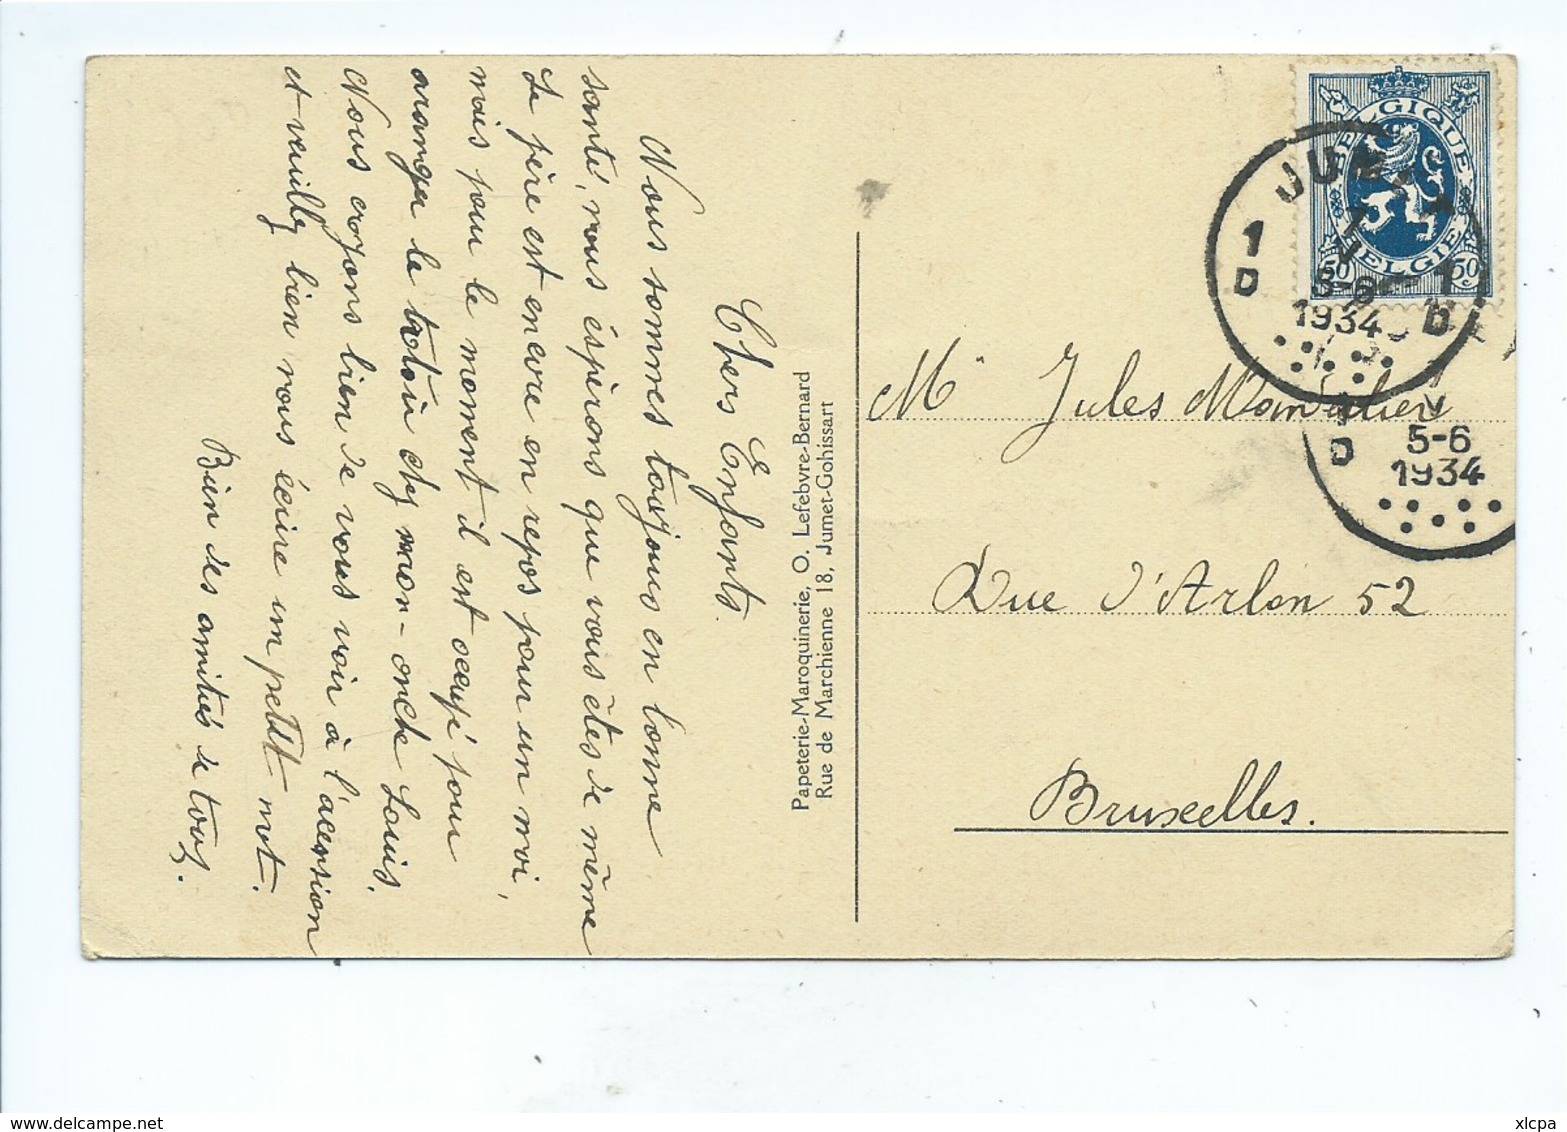 Chers Enfants.
Nous sommes toujours en bonne
santé, nous éspèrons que vous êtes de même
Le père est encore en repos pour un moi,
mais pour le moment il est occupé pour
aranger le trotoir chez mon-oncle Louis.
Nous croyons bien de vous voir à l'acension
et veuillez bien nous écrire un petit mot.
Bien des amitiés de tous.
Papeterie-Maroquinerie, O. Lefebvre-Bernard
Rue de Marchienne 18, Jumet-Gohissart
BELGIQUE
BELGIE
50c 50c
JUM
1 1
D D
5-6
1934
1
D
V
5-6
1934
Mr Jules
Rue d'Arlon 52
Bruxelles.
www.delcampe.net
xlcpa